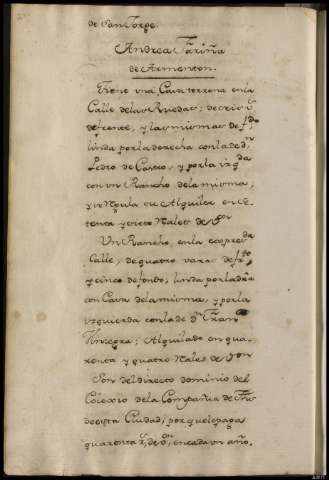 de San Jorge.
Andrea Fariña
de Armenton.
Tiene una Casa terrena en la
Calle de las Ruedas; de cinco v.s
de frente, y las mismas de f.do
linda por la derecha con la de d.n
Pedro de Castro, y por la izq.da
con un Rancho de la misma,
y se regula su Alquiler en se-
tenta y cinco Reales de V.on
Un Rancho, en la expres.da
Calle, de quatro varas de fr.te
y cinco de fondo, linda por la dra.
con Casa de la misma, y por la
izquierda con la de d.n Fran.co
Alquilado en qua-
renta y quatro Reales de V.on
Son del directo dominio del
Colexio de la Compañia de Jhs
de esta Ciudad; por que le paga
quarenta r.s de v.on, en cada un año.